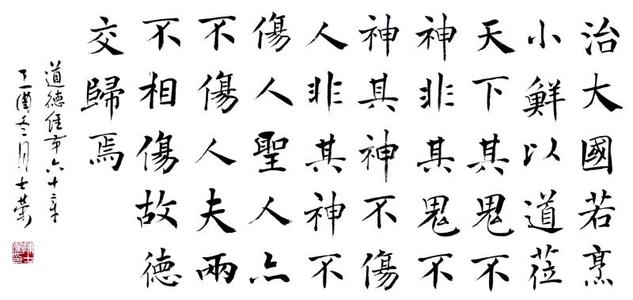 治大國若烹
小鮮以道莅
天下其鬼不
神非其鬼不
神其神不傷
人非其神不
傷人聖人亦
不傷人夫兩
不相傷故德
交歸焉
道德經第六十章
丁酉冬月士榮